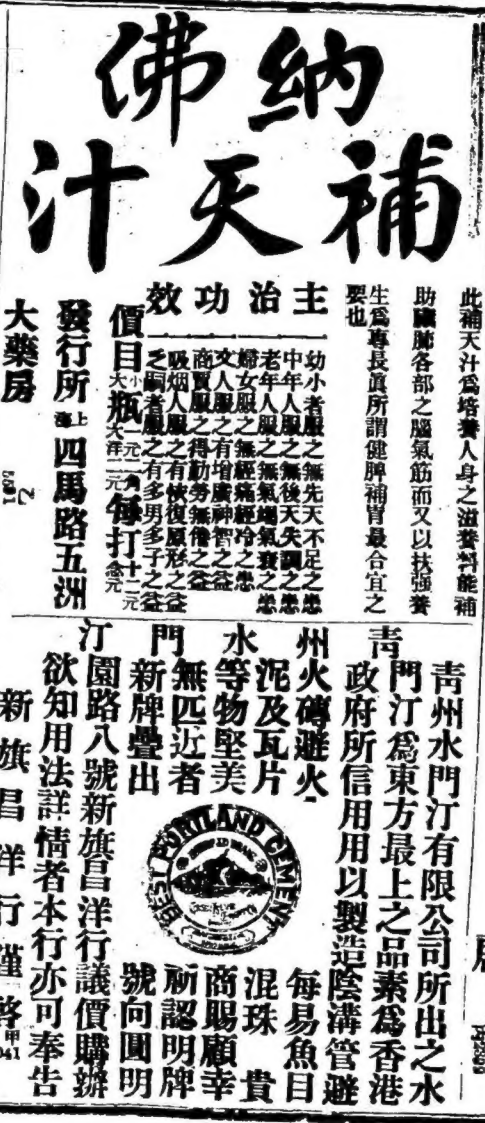 納佛
補天汁
此補天汁爲培養人身之滋養料能補
助臟腑各部之腦氣筋而又以扶强養
生爲專長眞所謂健脾補胃最合宜之
要也
主治功效
幼小者服之無先天不足之患
中年人服之無後天失調之患
老年人服之無氣喘氣衰之患
婦女服之無經痛經冷之患
文人服之有增廣神智之益
商賈服之得勤勞無倦之益
吸烟人服之有恢復原形之益
乏嗣者服之有多男多子之益
價目 小瓶一元二角 每打十二元
大瓶大洋二元 每打念元
發行所上海四馬路五洲
大藥房
青州水門汀
青州水門汀有限公司所出之水
門汀爲東方最上之品素爲香港
政府所信用用以製造陰溝管避
火磚避火
泥及瓦片
等物堅美
無匹近者
新牌疊出
BEST PORTLAND CEMENT
每易魚目
混珠 貴
商賜顧幸
祈認明牌
號向圓明
園路八號新旗昌洋行議價購辦
欲知用法詳情者本行亦可奉告
新旗昌洋行謹啓